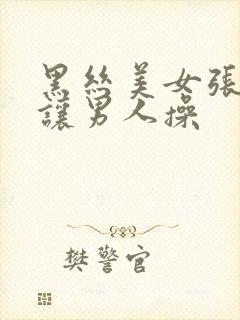 黑丝美女張
讓男人操
樊警官